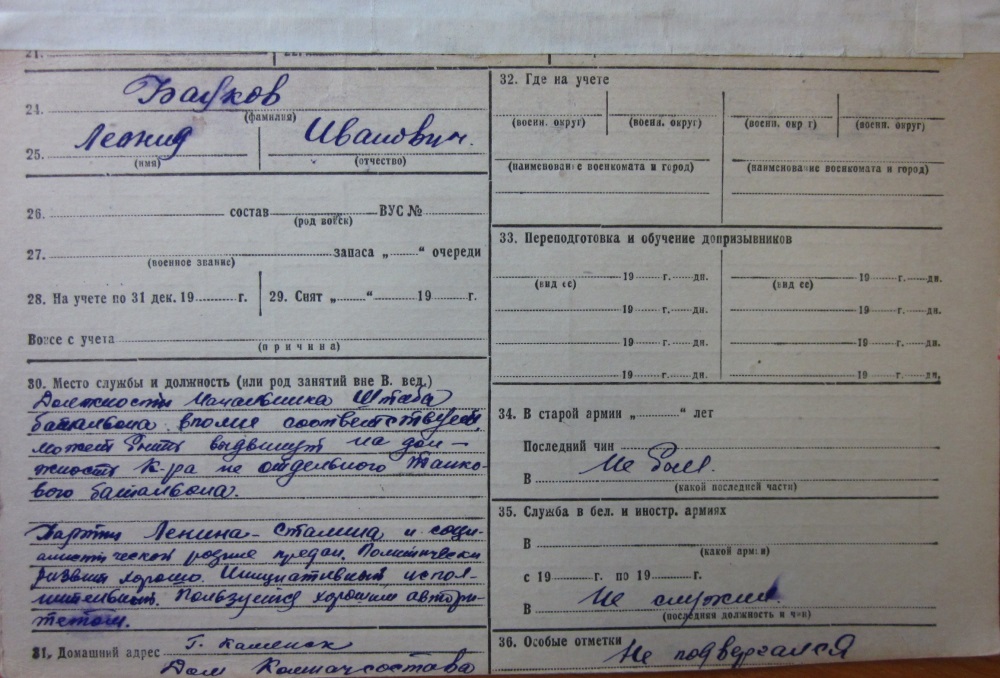 21.
24. Бауков
(фамилия)
25. Леонид Иванович.
(имя) (отчество)
26. состав ВУС №
(род войск)
27. запаса „ “ очереди
(военное звание)
28. На учете по 31 дек. 19 г. 29. Снят „ “ 19 г.
Вовсе с учета
(причина)
30. Место службы и должность (или род занятий вне В. вед.)
Должности Начальника Штаба
батальона вполне соответствует,
может быть выдвинут на дол-
жность К-ра не отдельного Танко-
вого баталвона.
Партии Ленина-Сталина и соци-
алистической родине предан. Политически
развит хорошо. Инициативный испол-
нительный. Пользуется хорошим автори-
тетом.
31. Домашний адрес Г. Каменск
Дом Комначсостава
32. Где на учете
(военн. округ) (военн. округ) (военн. окр г) (военн. округ)
(наименование военкомата и город) (наименование военкомата и город)
33. Переподготовка и обучение допризывников
19 г. дн. 19 г. дн.
(вид ее) (вид ее)
19 г. дн. 19 г. дн.
19 г. дн. 19 г. дн.
19 г. дн. 19 г. дн.
34. В старой армии „ “ лет
Последний чин
В Не был.
(какой последней части)
35. Служба в бел. и иностр. армиях
В
(какой армии)
с 19 г. по 19 г.
В Не служил.
(последняя должность и чин)
36. Особые отметки Не подвергался